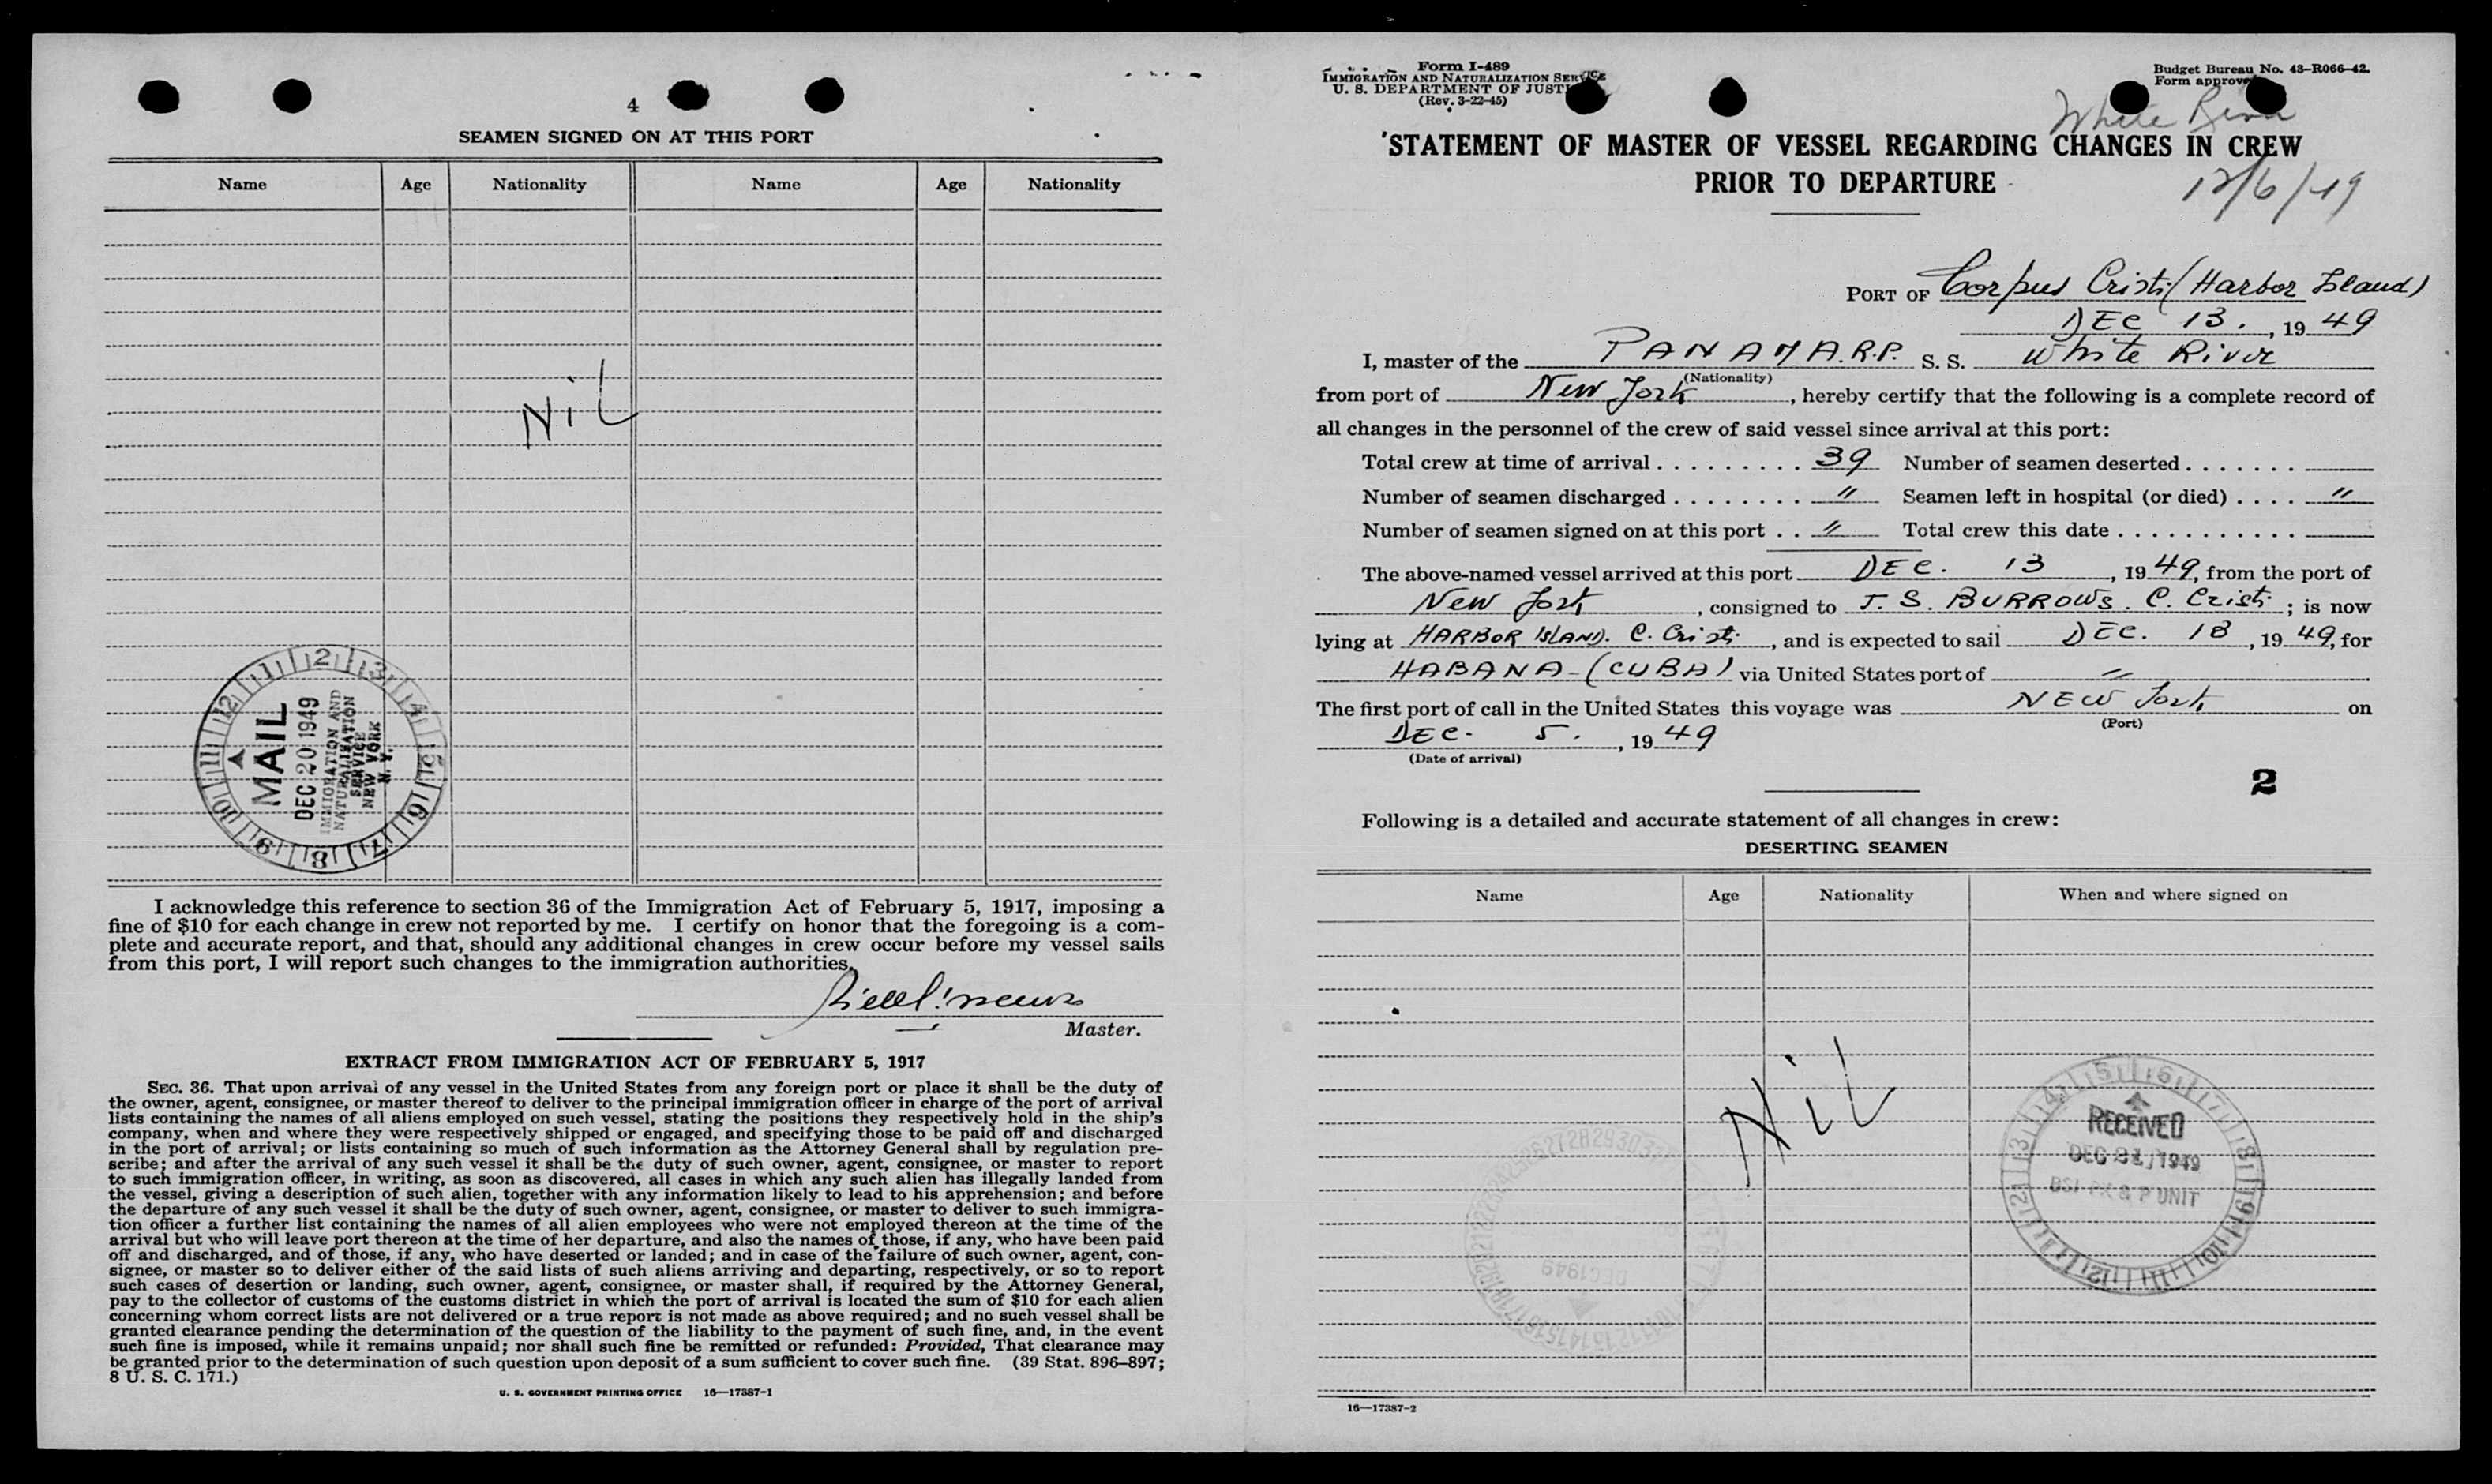 4
SEAMEN SIGNED ON AT THIS PORT
Name Age Nationality Name Age Nationality
Nil
MAIL
DEC 20 1949
IMMIGRATION AND
NATURALIZATION
SERVICE
NEW YORK
N. Y.
I acknowledge this reference to section 36 of the Immigration Act of February 5, 1917, imposing a
fine of $10 for each change in crew not reported by me. I certify on honor that the foregoing is a com-
plete and accurate report, and that, should any additional changes in crew occur before my vessel sails
from this port, I will report such changes to the immigration authorities.
Master.
EXTRACT FROM IMMIGRATION ACT OF FEBRUARY 5, 1917
SEC. 36. That upon arrival of any vessel in the United States from any foreign port or place it shall be the duty of
the owner, agent, consignee, or master thereof to deliver to the principal immigration officer in charge of the port of arrival
lists containing the names of all aliens employed on such vessel, stating the positions they respectively hold in the ship's
company, when and where they were respectively shipped or engaged, and specifying those to be paid off and discharged
in the port of arrival; or lists containing so much of such information as the Attorney General shall by regulation pre-
scribe; and after the arrival of any such vessel it shall be the duty of such owner, agent, consignee, or master to report
to such immigration officer, in writing, as soon as discovered, all cases in which any such alien has illegally landed from
the vessel, giving a description of such alien, together with any information likely to lead to his apprehension; and before
the departure of any such vessel it shall be the duty of such owner, agent, consignee, or master to deliver to such immigra-
tion officer a further list containing the names of all alien employees who were not employed thereon at the time of the
arrival but who will leave port thereon at the time of her departure, and also the names of those, if any, who have been paid
off and discharged, and of those, if any, who have deserted or landed; and in case of the failure of such owner, agent, con-
signee, or master so to deliver either of the said lists of such aliens arriving and departing, respectively, or so to report
such cases of desertion or landing, such owner, agent, consignee, or master shall, if required by the Attorney General,
pay to the collector of customs of the customs district in which the port of arrival is located the sum of $10 for each alien
concerning whom correct lists are not delivered or a true report is not made as above required; and no such vessel shall be
granted clearance pending the determination of the question of the liability to the payment of such fine, and, in the event
such fine is imposed, while it remains unpaid; nor shall such fine be remitted or refunded: Provided, That clearance may
be granted prior to the determination of such question upon deposit of a sum sufficient to cover such fine. (39 Stat. 896–897;
8 U. S. C. 171.)
U. S. GOVERNMENT PRINTING OFFICE 16—17387-1
Form I-489
IMMIGRATION AND NATURALIZATION SERVICE
U. S. DEPARTMENT OF JUSTI
(Rev. 3-22-45)
Budget Bureau No. 43-R066-42.
Form approve
White River
STATEMENT OF MASTER OF VESSEL REGARDING CHANGES IN CREW
PRIOR TO DEPARTURE
12/6/49
PORT OF Corpus Cristi (Harbor Island)
DEC 13., 1949
I, master of the PANAMA.R.P. S. S. White River
(Nationality)
from port of New York, hereby certify that the following is a complete record of
all changes in the personnel of the crew of said vessel since arrival at this port:
Total crew at time of arrival . . . . . . . . . 39 Number of seamen deserted . . . . . . .
Number of seamen discharged . . . . . . . . " Seamen left in hospital (or died) . . . . "
Number of seamen signed on at this port . . " Total crew this date . . . . . . . . . . .
The above-named vessel arrived at this port DEC. 13, 1949, from the port of
New York, consigned to J. S. BURROWS. C. Cristi; is now
lying at HARBOR ISLAND. C. Cristi, and is expected to sail DEC. 18, 1949, for
HABANA-(CUBA) via United States port of "
The first port of call in the United States this voyage was NEW York on
(Port)
DEC. 5., 1949
(Date of arrival)
2
Following is a detailed and accurate statement of all changes in crew:
DESERTING SEAMEN
Name Age Nationality When and where signed on
Nil
RECEIVED
DEC 1949
UNIT
16—17387-2